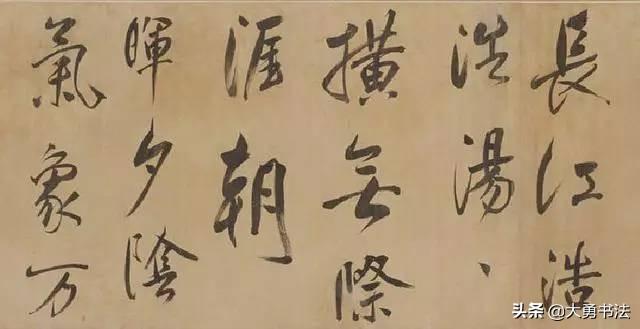 長江浩
浩湯、
橫無際
涯朝
暉夕陰
氣象万
头条 @大勇书法